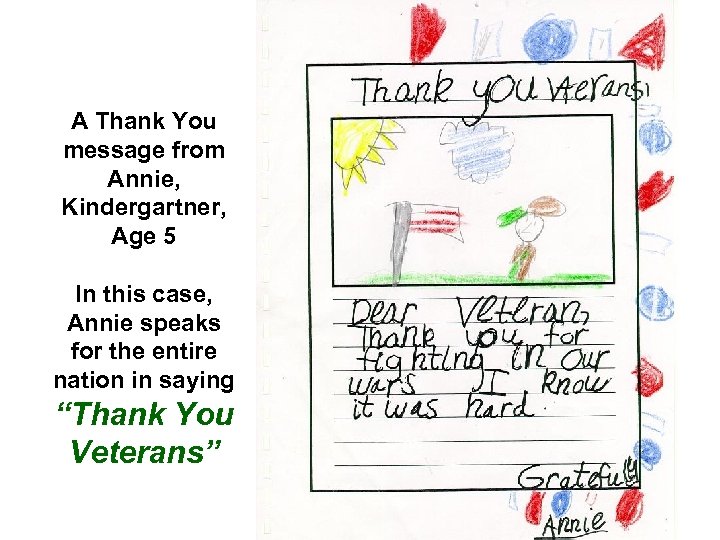 A Thank You
message from
Annie,
Kindergartner,
Age 5
In this case,
Annie speaks
for the entire
nation in saying
“Thank You
Veterans”
Thank you Veterans!
Dear Veteran,
Thank you for
fighting in our
wars I know
it was hard.
Gratefully
Annie